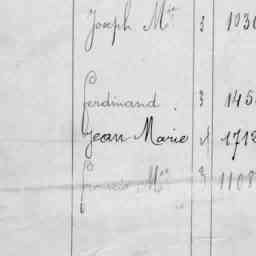 Joseph Mie 3
Ferdinand. 3 145
Jean Marie 1712
3 1108